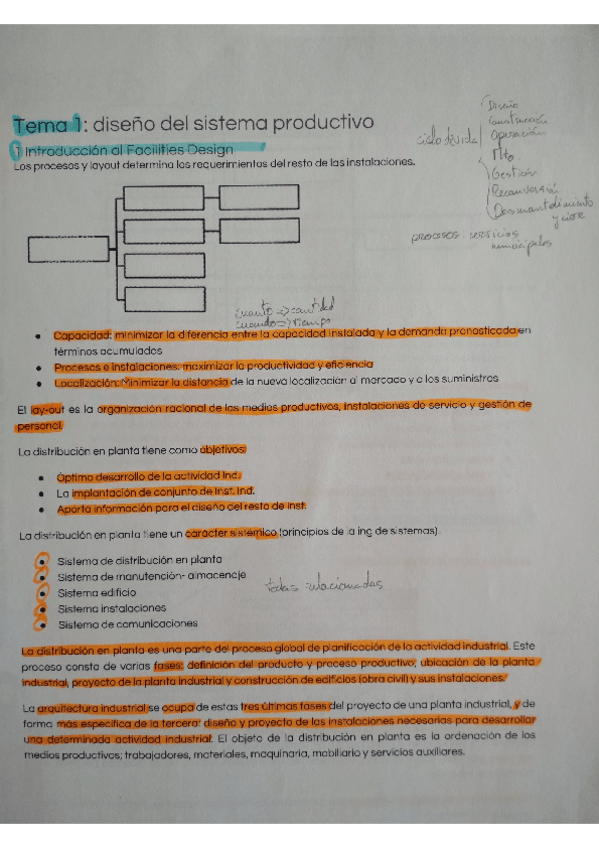 Tema 1: diseño del sistema productivo
1 Introducción al Facilities Design
Los procesos y layout determina los requerimientos del resto de las instalaciones.
ciclo de vida
Diseño
Construcción
Operación
Mto
Gestión
Reconversión
Desmantelamiento
y cierre
procesos servicios
municipales
cuanto => cantidad
cuando => tiempo
• Capacidad: minimizar la diferencia entre la capacidad instalada y la demanda pronosticada en
términos acumulados
• Procesos e instalaciones: maximizar la productividad y eficiencia
• Localización: Minimizar la distancia de la nueva localización al mercado y a los suministros
El lay-out es la organización racional de los medios productivos, instalaciones de servicio y gestión de
personal.
La distribución en planta tiene como objetivos:
• Óptimo desarrollo de la actividad Ind.
• La implantación de conjunto de Inst. Ind.
• Aporta información para el diseño del resto de Inst.
La distribución en planta tiene un caracter sistémico (principios de la ing de sistemas).
• Sistema de distribución en planta
• Sistema de manutención- almacenaje
• Sistema edificio
• Sistema instalaciones
• Sistema de comunicaciones
todas relacionadas
La distribución en planta es una parte del proceso global de planificación de la actividad industrial. Este
proceso consta de varias fases: definición del producto y proceso productivo; ubicación de la planta
industrial, proyecto de la planta industrial y construcción de edificios (obra civil) y sus instalaciones.
La arquitectura industrial se ocupa de estas tres últimas fases del proyecto de una planta industrial, y de
forma más específica de la tercera: diseño y proyecto de las instalaciones necesarias para desarrollar
una determinada actividad industrial. El objeto de la distribución en planta es la ordenación de los
medios productivos; trabajadores, materiales, maquinaria, mobiliario y servicios auxiliares.